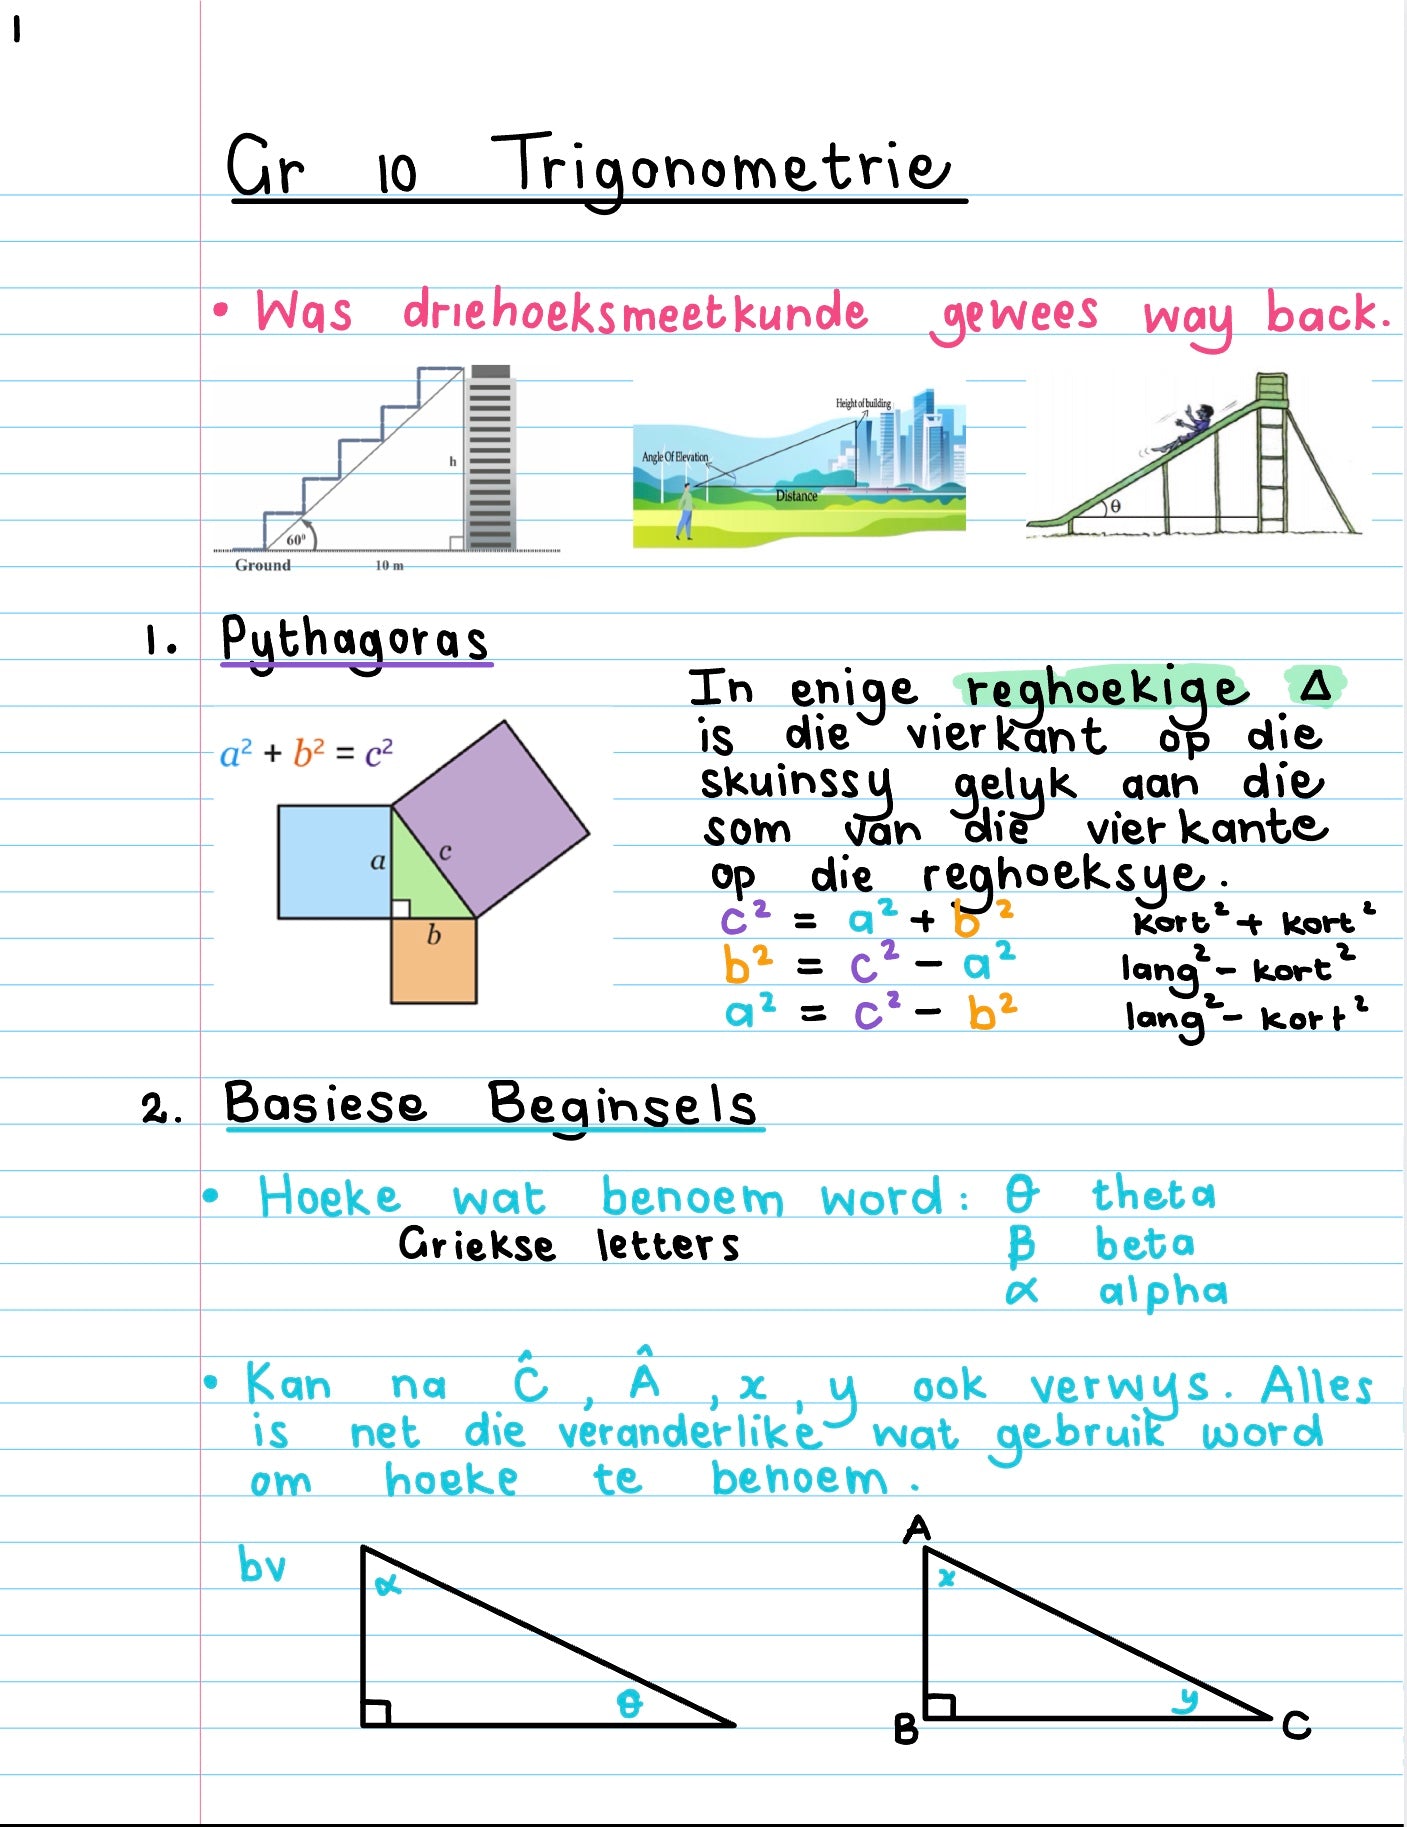 1
Gr 10 Trigonometrie
• Was driehoeksmeetkunde gewees way back.
h
60⁰
Ground
10 m
Height of building
Angle Of Elevation
Distance
θ
1. Pythagoras
a² + b² = c²
a
c
b
In enige reghoekige Δ
is die vierkant op die
skuinssy gelyk aan die
som van die vierkante
op die reghoeksye.
c² = a² + b² kort² + kort²
b² = c² - a² lang² - kort²
a² = c² - b² lang² - kort²
2. Basiese Beginsels
• Hoeke wat benoem word: θ theta
Griekse letters β beta
α alpha
• Kan na Ĉ, Â, x, y ook verwys. Alles
is net die veranderlike wat gebruik word
om hoeke te benoem.
bv
α
θ
A
x
y
B
C